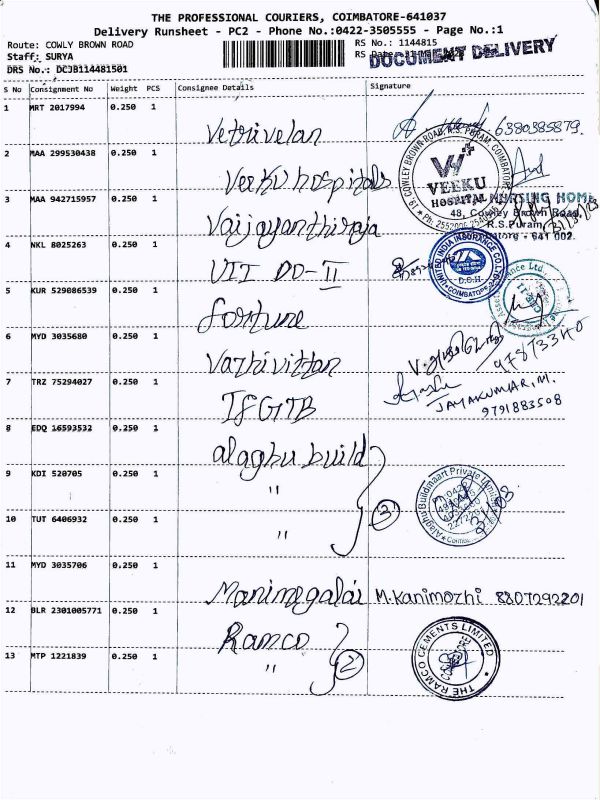 THE PROFESSIONAL COURIERS, COIMBATORE-641037
Delivery Runsheet - PC2 - Phone No.:0422-3505555 - Page No.:1
Route: COWLY BROWN ROAD
RS No.: 1144815
Staff: SURYA
RS
DOCUMENT DELIVERY
DRS No.: DCJB114481501
S No Consignment No Weight PCS Consignee Details Signature
1 MRT 2017994 0.250 1
Vetrivelan 6380385879
2 MAA 299530438 0.250 1
Veeku hospitals
19, COWLEY BROWN ROAD, R.S. PURAM, COIMBATORE
VEEKU
HOSPITAL
3 MAA 942715957 0.250 1
Vaijayanthiraja
NURSING HOME
48, Cowley Brown Road,
R.S.Puram,
641 002
4 NKL 8025263 0.250 1
UII DO-II
UNITED INDIA INSURANCE CO.LTD
COIMBATORE
5 KUR 529086539 0.250 1
fortune
6 MYD 3035680 0.250 1
Vazhivittan
7 TRZ 75294027 0.250 1
IFGTB
JAYAKUMAR.M.
9791883508
8 EDQ 16593532 0.250 1
alaghu build
9 KDI 520705 0.250 1
"
3
Alaghu Buildmaart Private Limited
31/08
10 TUT 6406932 0.250 1
"
11 MYD 3035706 0.250 1
Manimegalai M.Kanimozhi 8807292201
12 BLR 2301005771 0.250 1
Ramco
THE RAMCO CEMENTS LIMITED
13 MTP 1221839 0.250 1
"
2